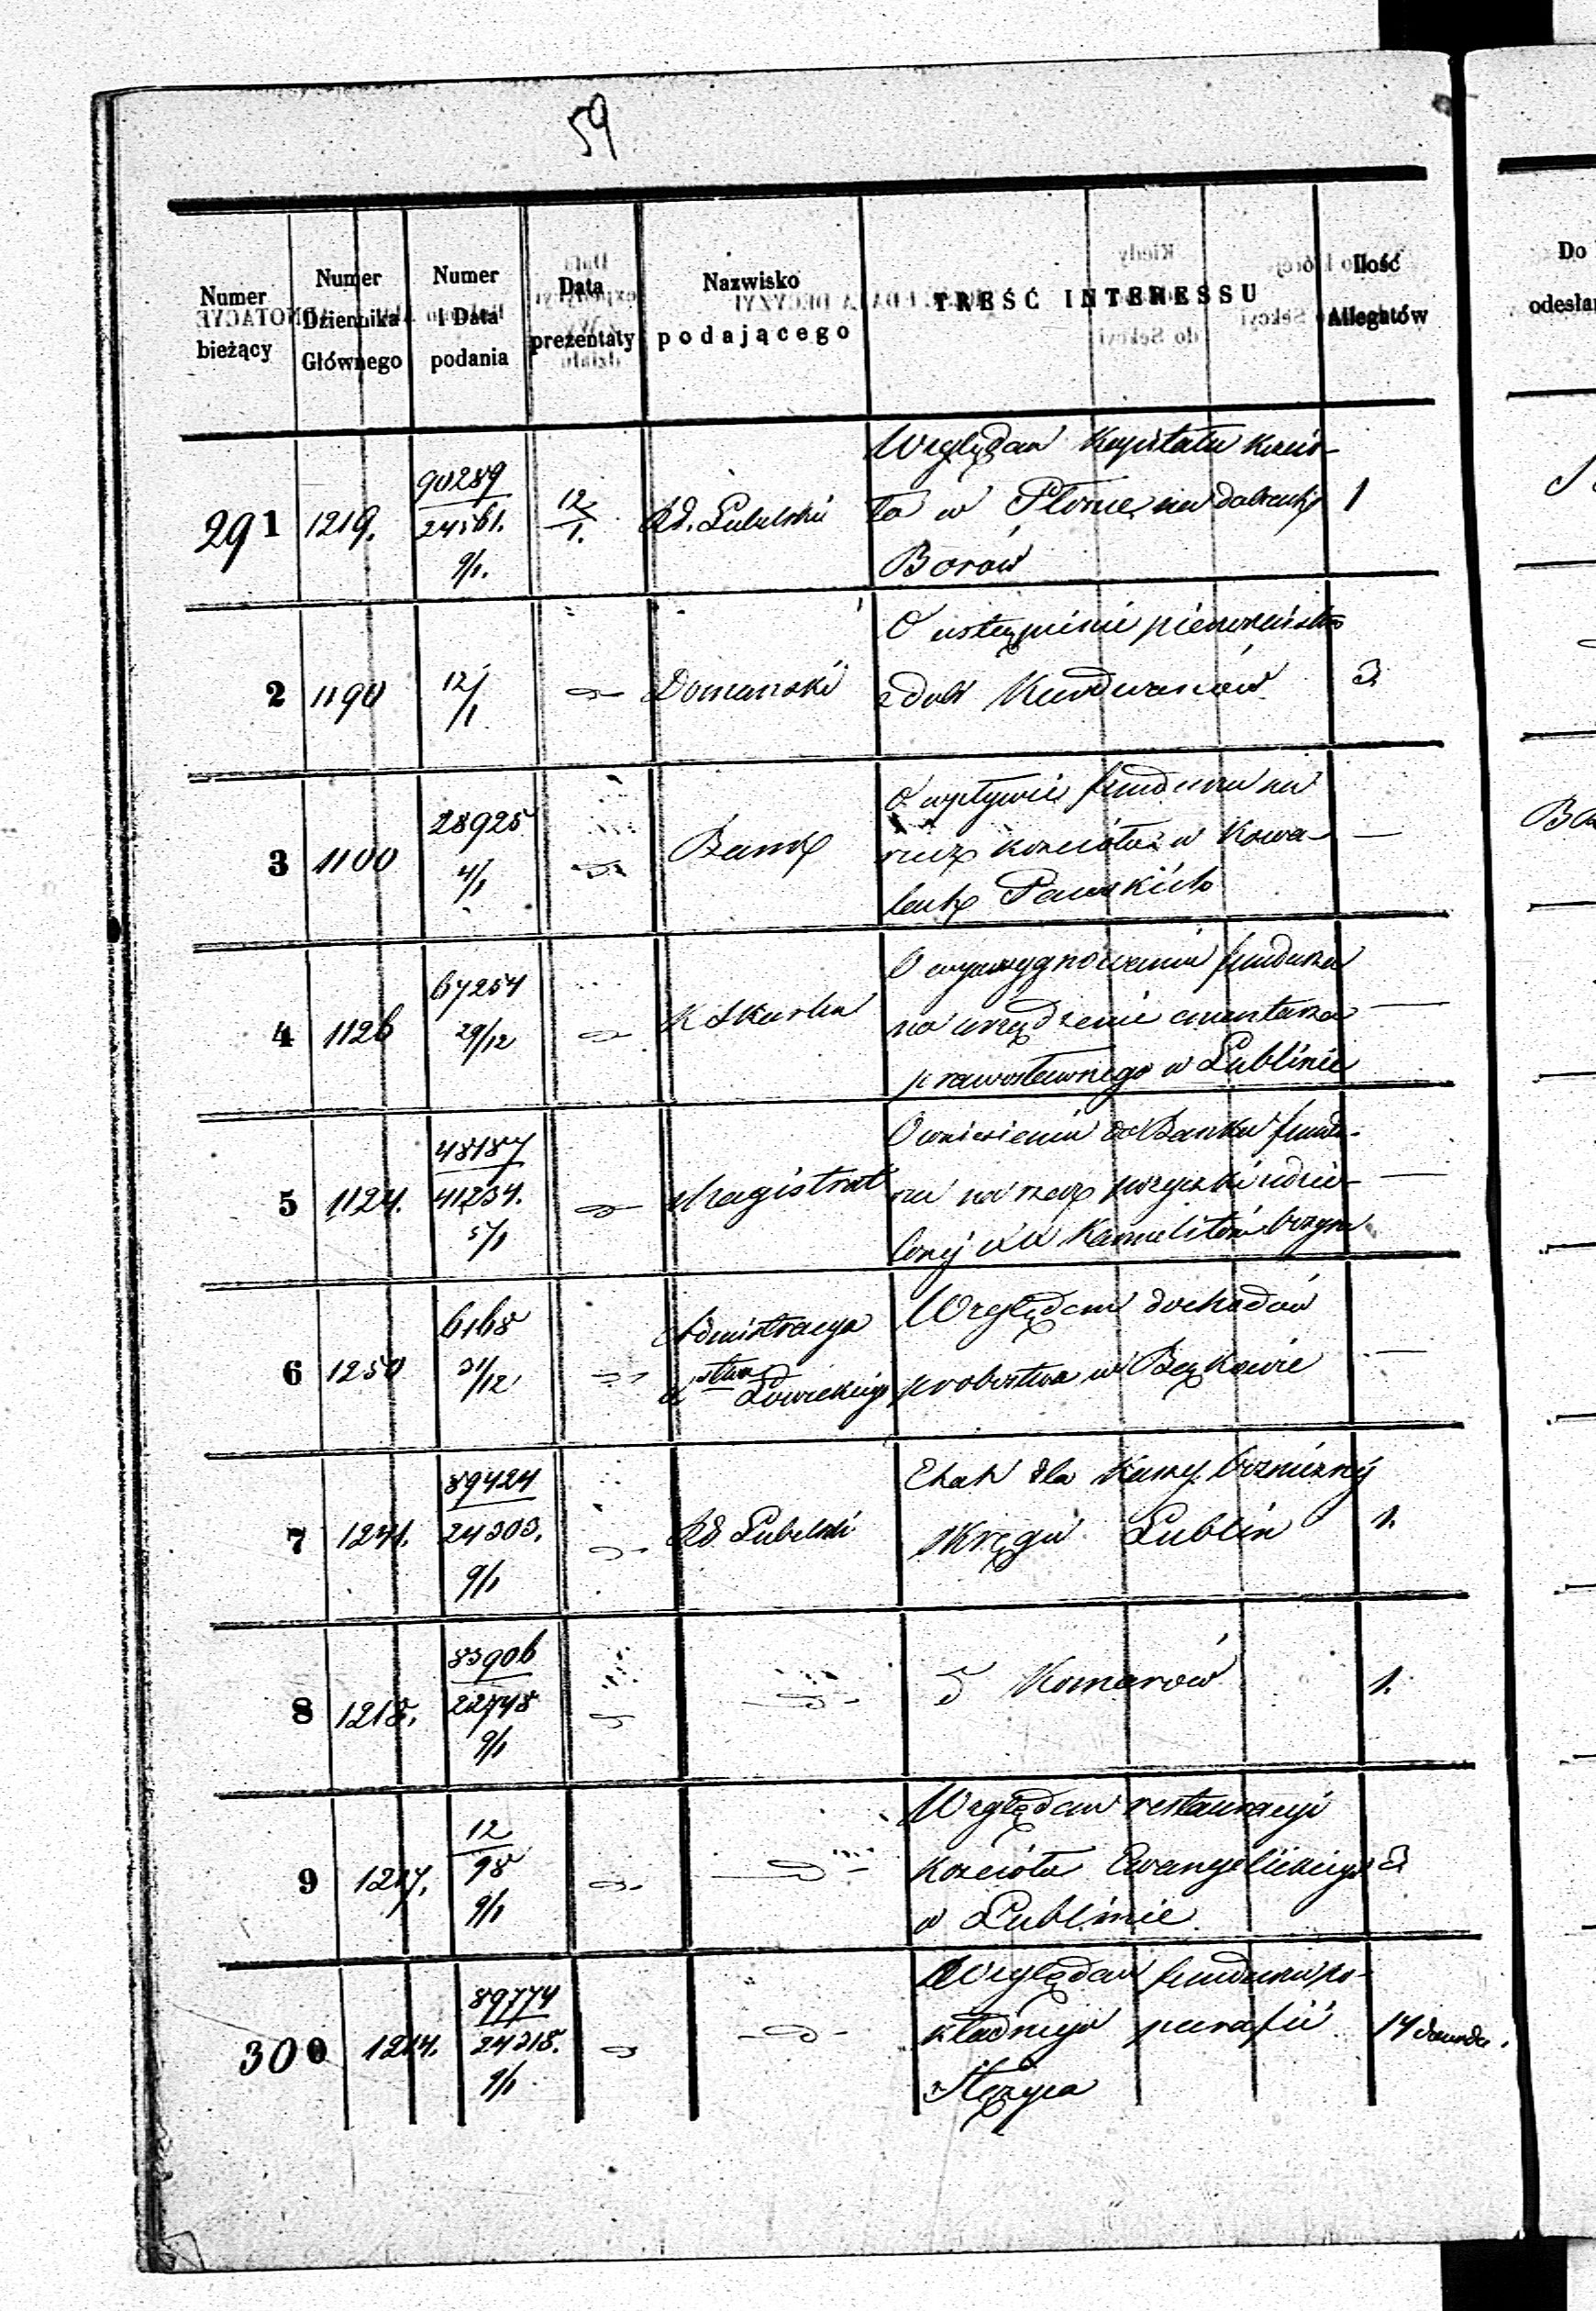 59
Numer bieżący
Numer Dziennika Głównego
Numer i Data podania
Data prezentaty
Nazwisko podającego
TREŚĆ INTERESSU
Ilość Allegatów
Do
291
1219.
90289
24561.
9/1.
12/1.
Rd. Lubelski
Względem Kapitału kościo-
ła w Płonce na dobrach
Borów
1
2
1190
12/1
Domanski
O ustąpienie pierwszeństwa
z dóbr Kurdwanów
3.
3
1100
28925
4/1
Bank
O wpływie funduszu na
rzecz kościoła w Kowa-
lach Pańskich
—
4
1126
67254
29/12
K Skarbu
O wyassygnowaniu funduszu
na urządzenie cmentarza
prawosławnego w Lublinie
—
5
1124.
48187
41234.
5/1
Magistrat
O wniesieniu do Banku fundu-
szu na rzecz pożyczki udzie-
lonej XX Karmelitom
—
6
1250
6168
31/12
Administracya
Xstwa Łowickiego
Względem dochodów
probostwa w Bąkowie
—
7
1221.
89424
24303.
9/1
Rd. Lubelski
Etat dla Kassy Bożniczej
Okręgu Lublin
1.
8
1218.
83906
22748
9/1
Komarow
1.
9
1217.
12
98
9/1
Względem restauracyi
Kościoła Ewangelickiego
w Lublinie
3
300
1214.
89774
24318.
9/1
Względem funduszu po-
kładnego parafii
Stężyca
14